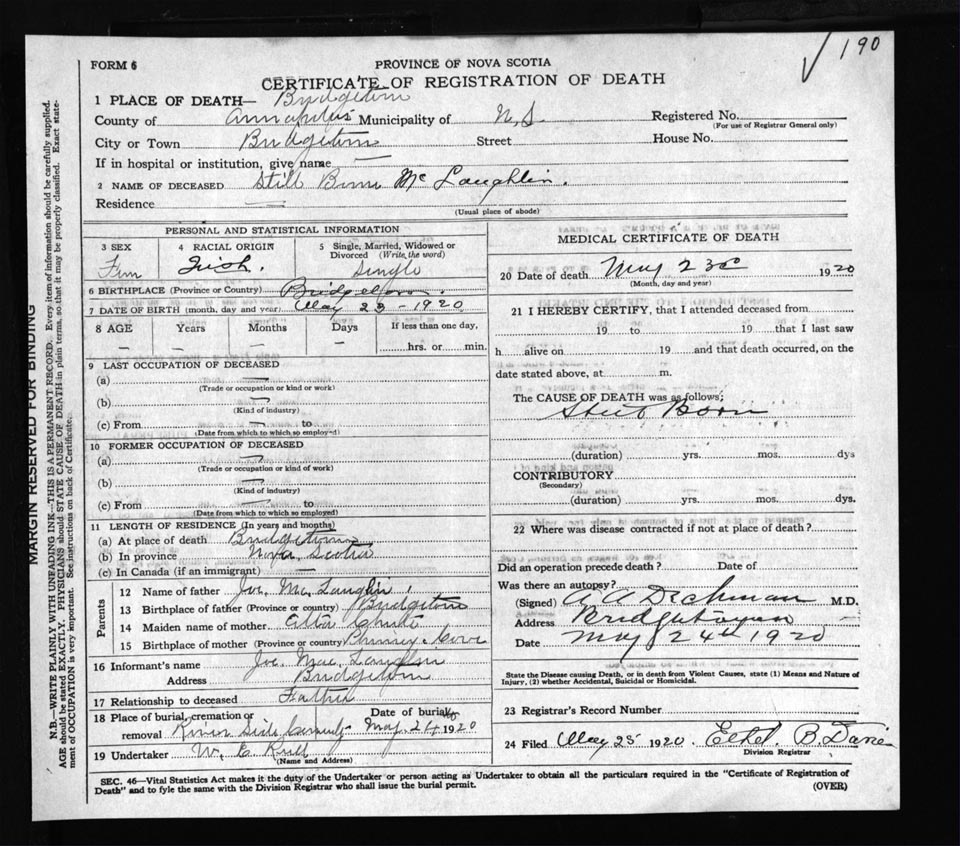 190
FORM 6
PROVINCE OF NOVA SCOTIA
CERTIFICATE OF REGISTRATION OF DEATH
1 PLACE OF DEATH— Bridgetown
County of Annapolis Municipality of N.S. Registered No.
(For use of Registrar General only)
City or Town Bridgetown Street House No.
If in hospital or institution, give name —
2 NAME OF DECEASED Still Born Mc Laughlin.
Residence —
(Usual place of abode)
PERSONAL AND STATISTICAL INFORMATION
3 SEX 4 RACIAL ORIGIN 5 Single, Married, Widowed or
Divorced (Write the word)
Fem Irish. Single
6 BIRTHPLACE (Province or Country) Bridgetown.
7 DATE OF BIRTH (month, day and year) May 23-1920
8 AGE Years Months Days If less than one day,
— — — — hrs. or min.
9 LAST OCCUPATION OF DECEASED
(a) —
(Trade or occupation or kind or work)
(b) —
(Kind of industry)
(c) From — to
(Date from which to which so employed)
10 FORMER OCCUPATION OF DECEASED
(a) —
(Trade or occupation or kind of work)
(b) —
(Kind of industry)
(c) From — to
(Date from which to which so employed)
11 LENGTH OF RESIDENCE (In years and months)
(a) At place of death Bridgetown
(b) In province Nova Scotia
(c) In Canada (if an immigrant) —
Parents
12 Name of father Joe. Mc Laughlin
13 Birthplace of father (Province or country) Bridgetown
14 Maiden name of mother Chute
15 Birthplace of mother (Province or country) Phinney Cove
16 Informant's name Joe. Mac Laughlin
Address Bridgetown
17 Relationship to deceased Father
18 Place of burial, cremation or Date of burial
removal River Side May 24 1920
19 Undertaker W. E.
(Name and Address)
MEDICAL CERTIFICATE OF DEATH
20 Date of death May 23 1920
(Month, day and year)
21 I HEREBY CERTIFY, that I attended deceased from
19 to 19 that I last saw
h alive on 19 and that death occurred, on the
date stated above, at m.
The CAUSE OF DEATH was as follows;
Still Born
(duration) yrs. mos. dys
CONTRIBUTORY
(Secondary)
(duration) yrs. mos. dys.
22 Where was disease contracted if not at place of death?
Did an operation precede death? Date of
Was there an autopsy?
(Signed) A A Dechman M.D.
Address Bridgetown
Date May 24th 1920
State the Disease causing Death, or in death from Violent Causes, state (1) Means and Nature of
Injury, (2) whether Accidental, Suicidal or Homicidal.
23 Registrar's Record Number
24 Filed May 25 1920. Ethel. B.
Division Registrar
SEC. 46—Vital Statistics Act makes it the duty of the Undertaker or person acting as Undertaker to obtain all the particulars required in the "Certificate of Registration of
Death" and to fyle the same with the Division Registrar who shall issue the burial permit.
(OVER)
MARGIN RESERVED FOR BINDING
N.B.—WRITE PLAINLY WITH UNFADING INK—THIS IS A PERMANENT RECORD. Every item of information should be carefully supplied.
AGE should be stated EXACTLY. PHYSICIANS should STATE CAUSE OF DEATH in plain terms, so that it may be properly classified. Exact state-
ment of OCCUPATION is very important. See instructions on back of Certificate.